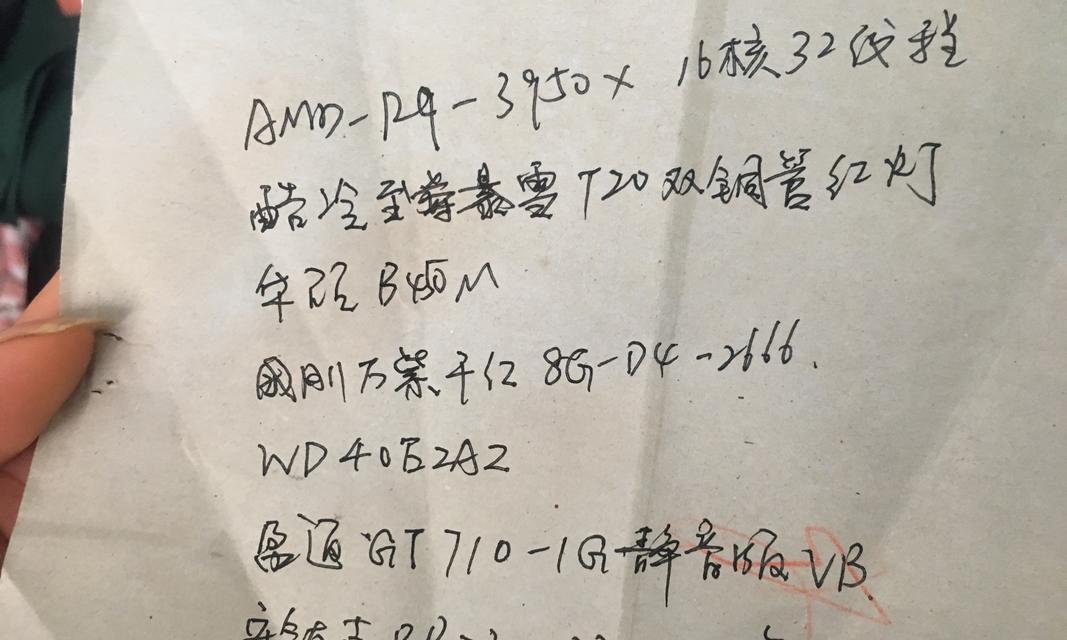 AMD-R9-3950X 16核32线程
酷冷至尊暴雪T20双铜管红灯
华硕B450M
刚万紫千红8G-D4-2666.
WD40EZAZ
盈通GT710-1G静音版VB.